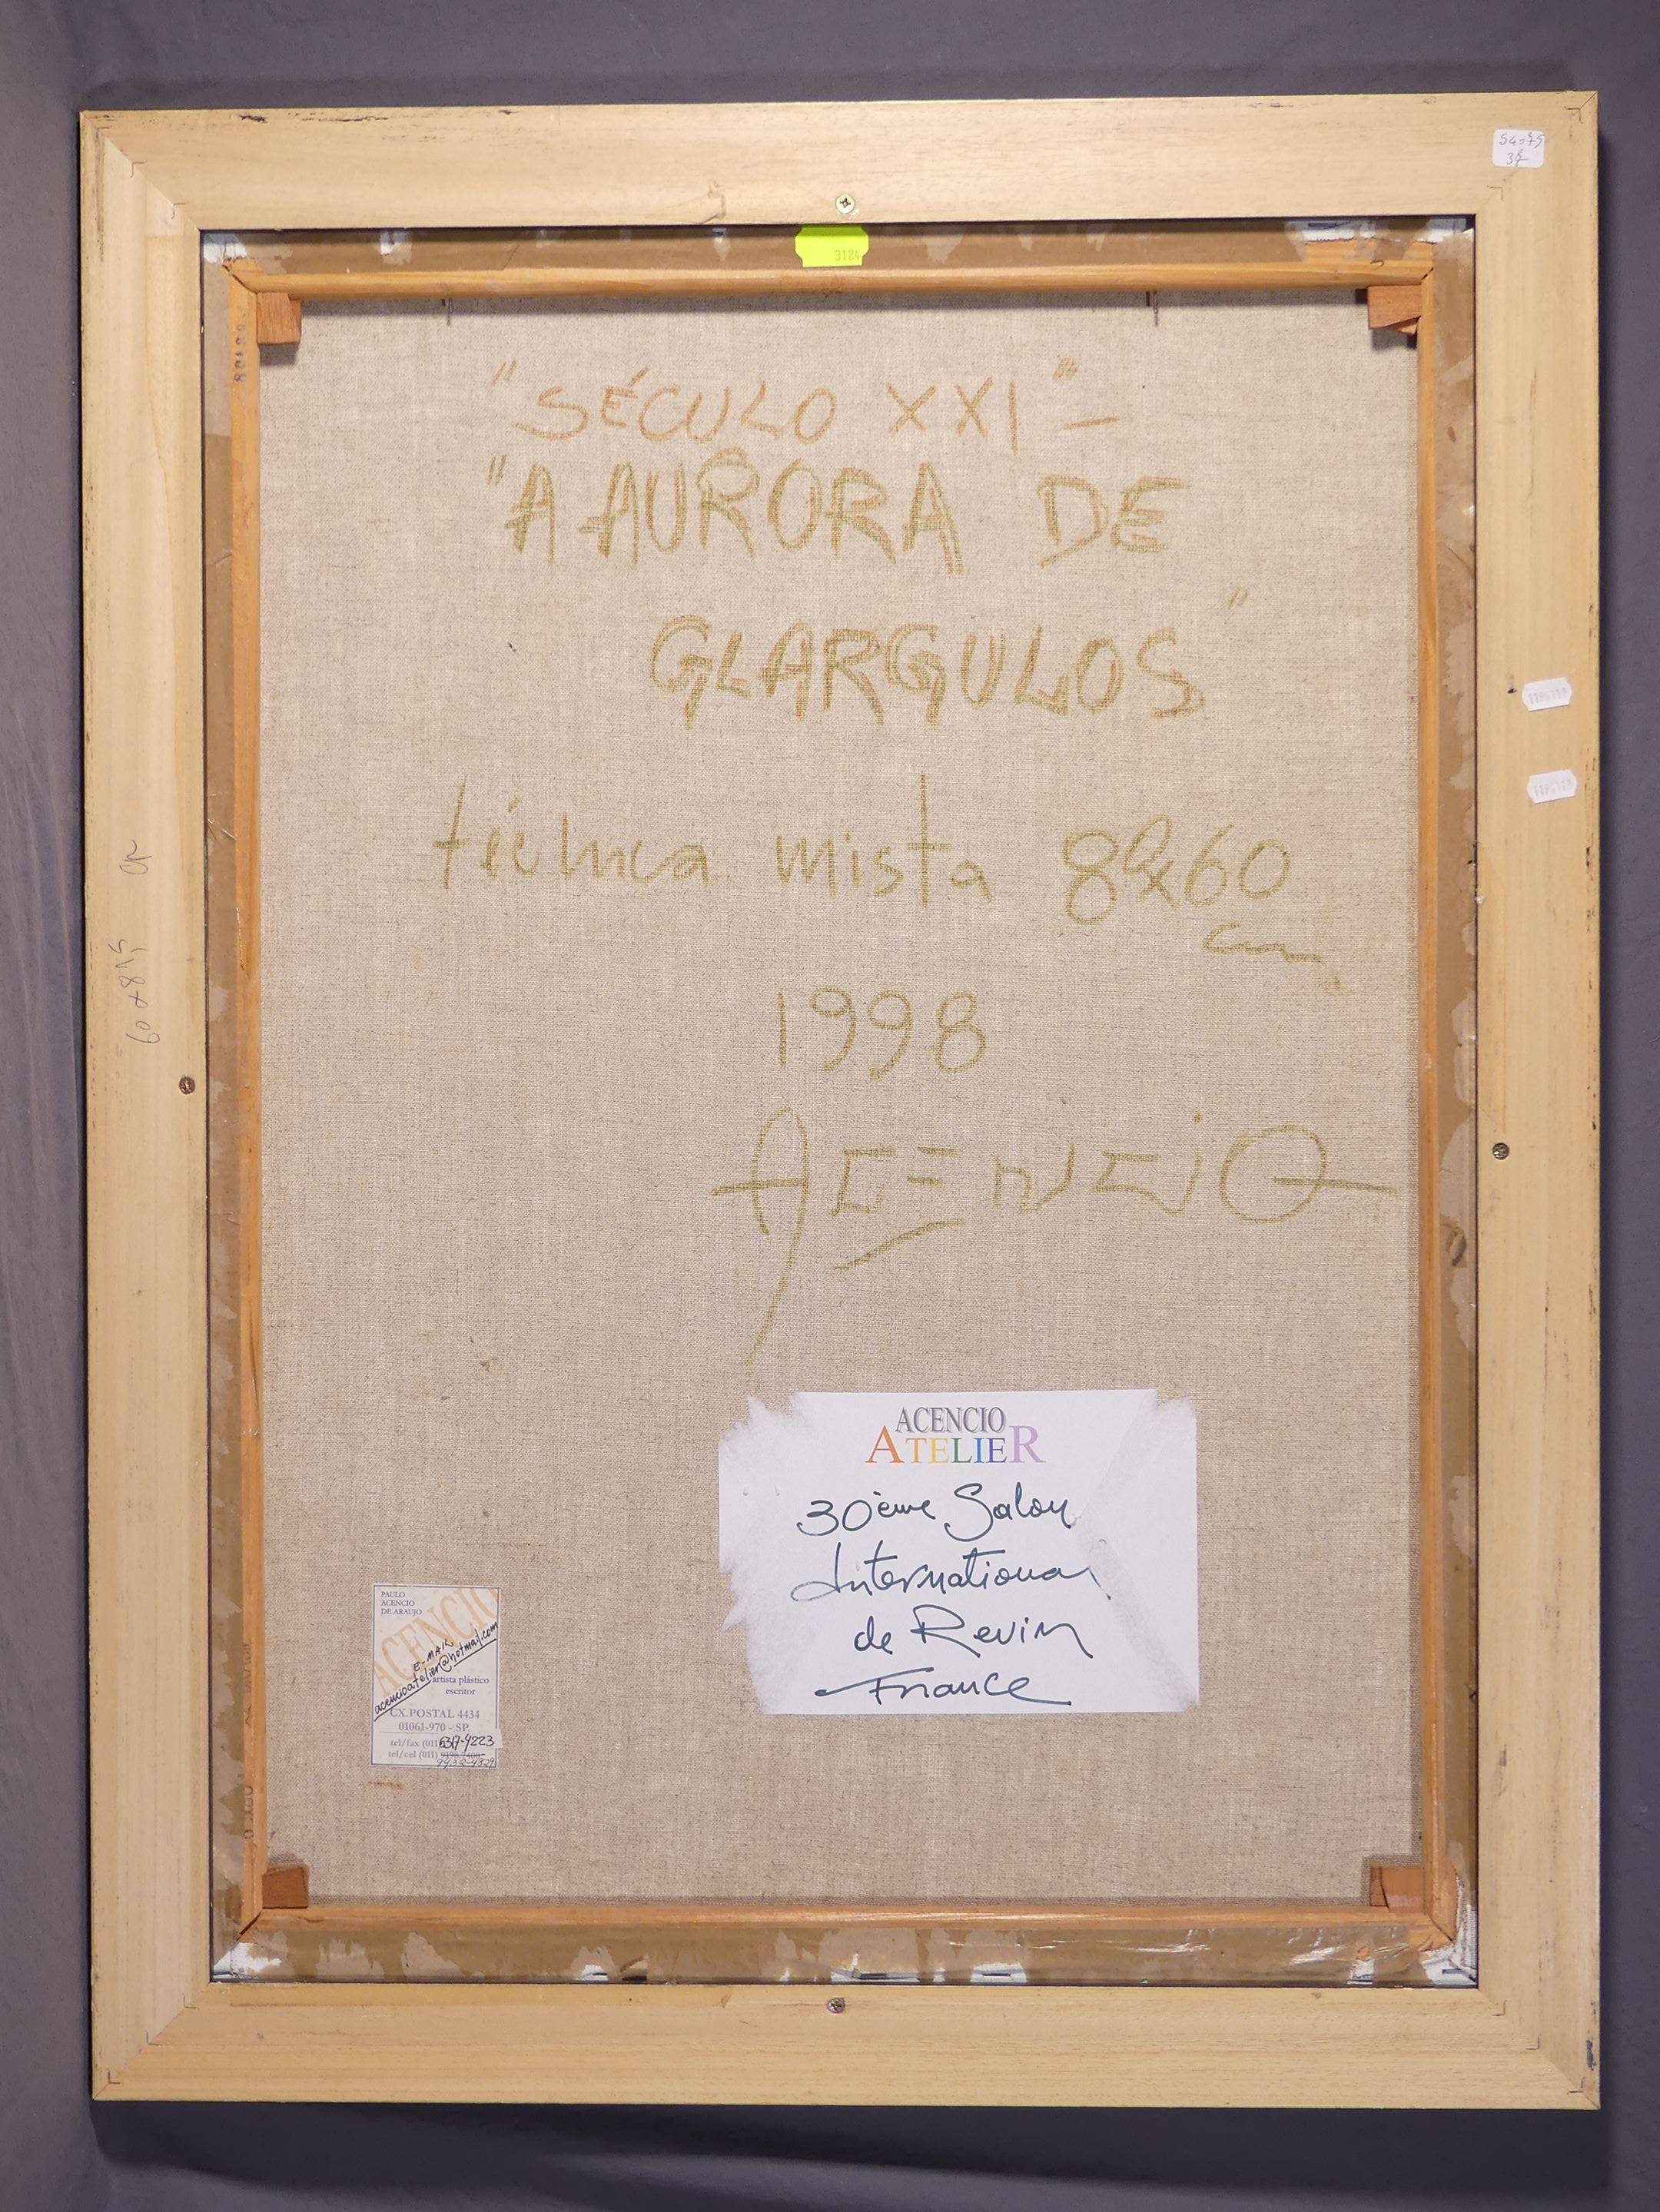 3184
"SÉCULO XXI" -
"A AURORA DE
GLARGULOS"
técnica mista 80x60
cm
1998
ACENCIO
60x81,5
ACENCIO
ATELIER
30ème Salon
International
de Revin
France
PAULO
ACENCIO
DE ARAUJO
ACENCIO
E-MAIL
acencioatelier@hotmail.com
artista plástico
escritor
CX.POSTAL 4434
01061-970 - SP
tel/fax (011
tel/cel (011)